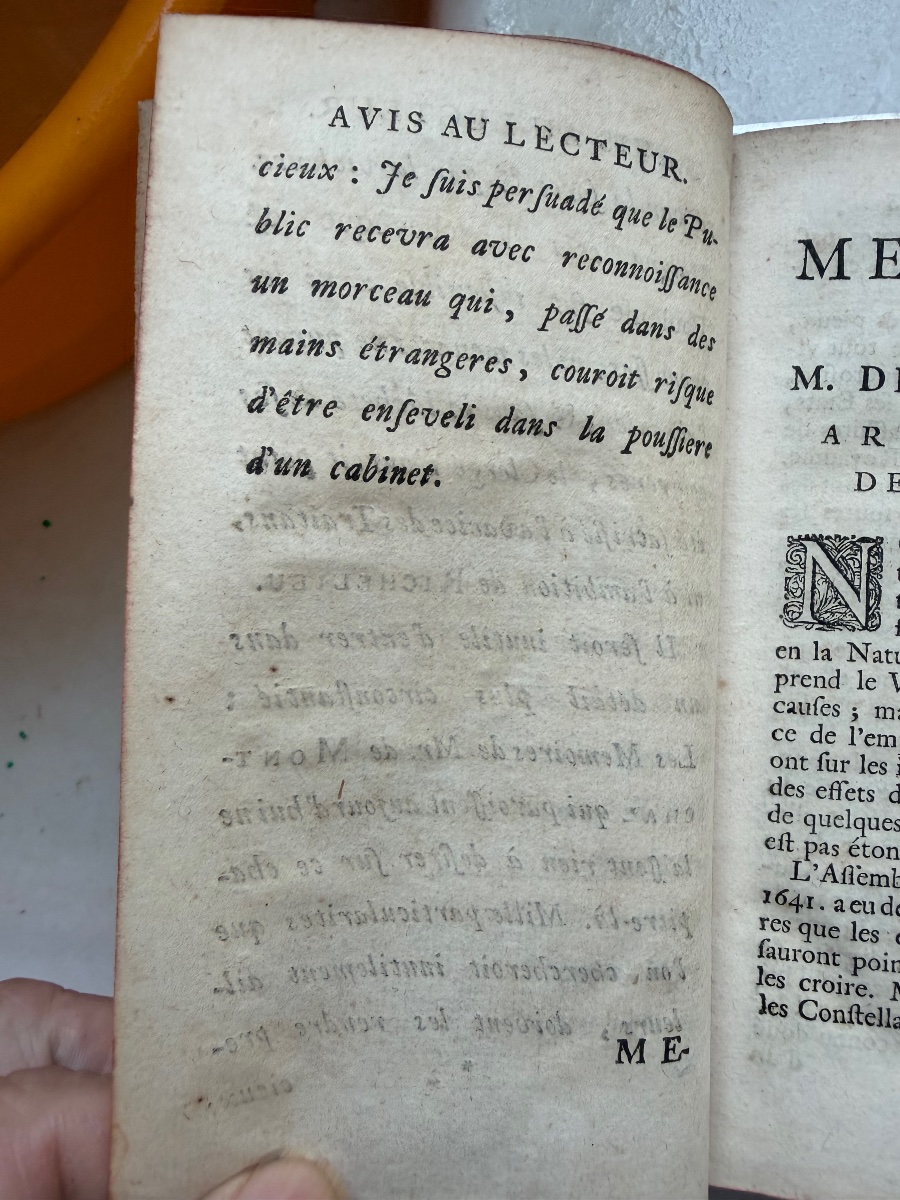 AVIS AU LECTEUR.
cieux : Je ſuis perſuadé que le Pu-
blic recevra avec reconnoiſſance
un morceau qui, paſſé dans des
mains étrangeres, couroit riſque
d'être enſeveli dans la pouſſiere
d'un cabinet.
ME-
ME
M. DE
AR
DE
N
en la Natu
prend le V
cauſes ; ma
ce de l'em
ont ſur les
des effets d
de quelques
eſt pas éton
L'Aſſemb
1641. a eu de
res que les
ſauront poin
les croire. M
les Conſtella